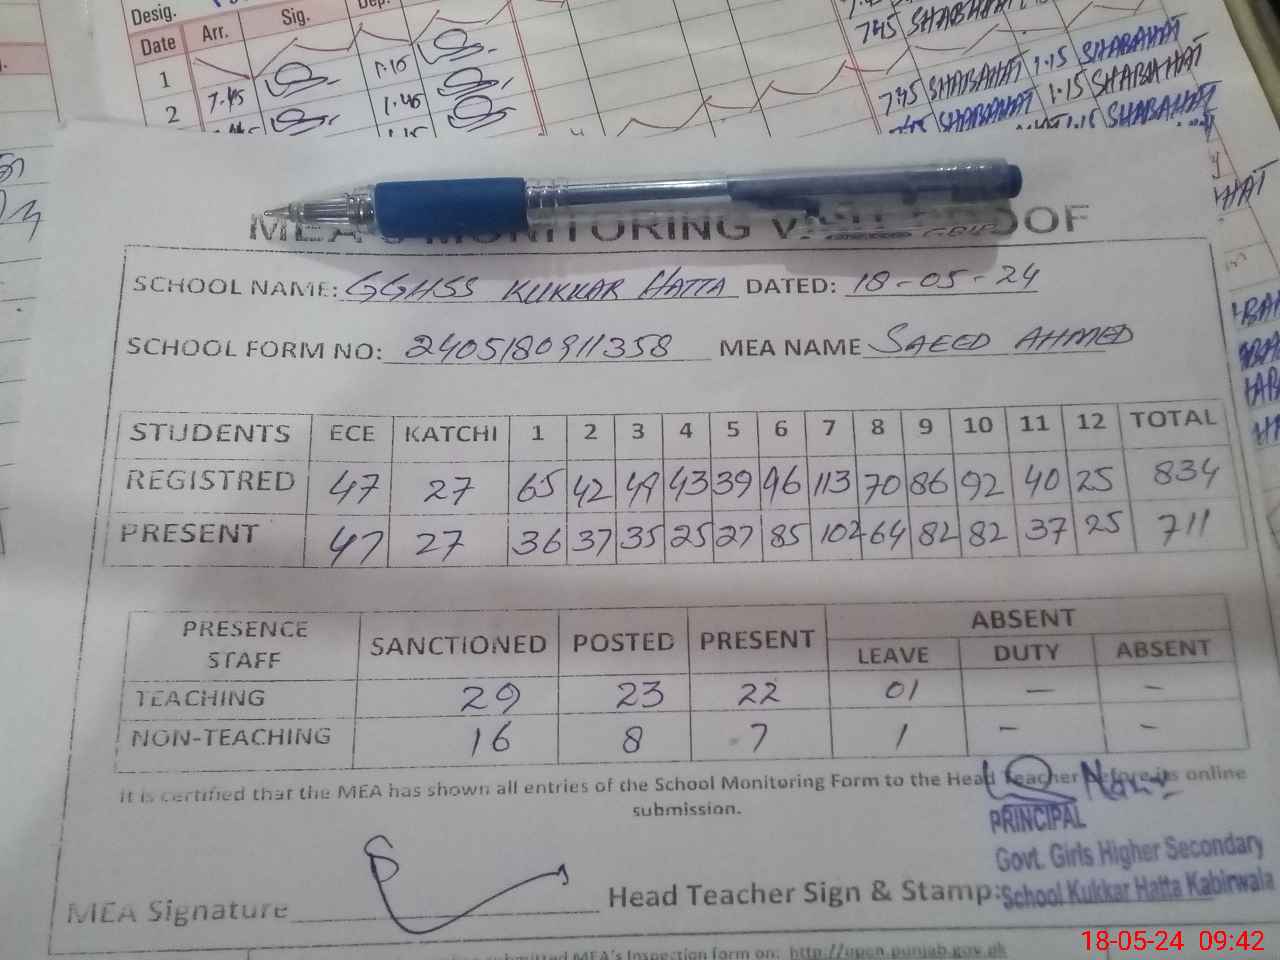 Desig.
Date Arr. Sig. Dep.
1 1.15
2 7.45 1.45
1.15
7:45 SHABAHAT
7:45 SHABAHAT 1.15 SHABAHAT
SHABAHAT 1.15 SHABAHAT
1.15 SHABAHAT
MEA'S MONITORING PROOF
SCHOOL NAME: GGHSS KUKKAR HATTA DATED: 18-05-24
SCHOOL FORM NO: 2405180911358 MEA NAME SAEED AHMED
STUDENTS ECE KATCHI 1 2 3 4 5 6 7 8 9 10 11 12 TOTAL
REGISTRED 47 27 65 42 49 43 39 96 113 70 86 92 40 25 834
PRESENT 47 27 36 37 35 25 27 85 102 64 82 82 37 25 711
PRESENCE STAFF SANCTIONED POSTED PRESENT ABSENT
LEAVE DUTY ABSENT
TEACHING 29 23 22 01 — –
NON-TEACHING 16 8 7 1 – –
It is certified that the MEA has shown all entries of the School Monitoring Form to the Head Teacher before its online
submission.
PRINCIPAL
Govt. Girls Higher Secondary
School Kukkar Hatta Kabirwala
MEA Signature Head Teacher Sign & Stamp:
submitted MEA's Inspection form on: http://open.punjab.gov.pk
18-05-24 09:42